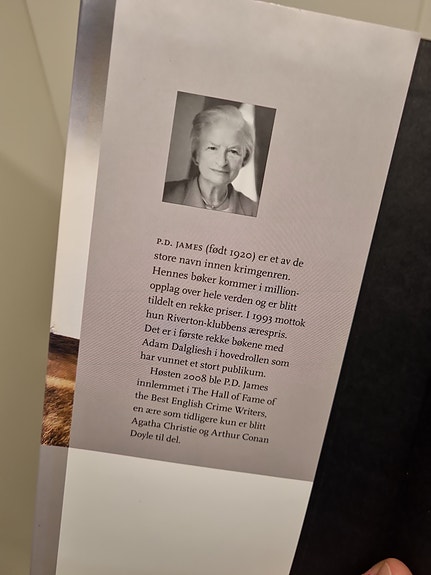 P.D. JAMES (født 1920) er et av de
store navn innen krimgenren.
Hennes bøker kommer i million-
opplag over hele verden og er blitt
tildelt en rekke priser. I 1993 mottok
hun Riverton-klubbens ærespris.
Det er i første rekke bøkene med
Adam Dalgliesh i hovedrollen som
har vunnet et stort publikum.
Høsten 2008 ble P.D. James
innlemmet i The Hall of Fame of
the Best English Crime Writers,
en ære som tidligere kun er blitt
Agatha Christie og Arthur Conan
Doyle til del.